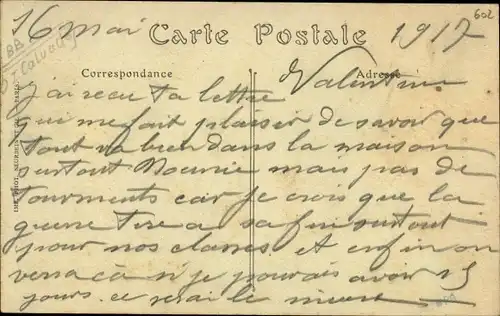 16 mai Carte Postale 1917
602
BB
Calvados
Correspondance Adresse
Valentine
J'ai recu ta lettre
qui me fait plaisir de savoir que
tout va bien dans la maison
surtout mais pas de
tourments car je crois que la
guerre tire a sa fin surtout
pour nos classes. et enfin on
verra ca si je pouvais avoir 15
jours. ce serai le mieux